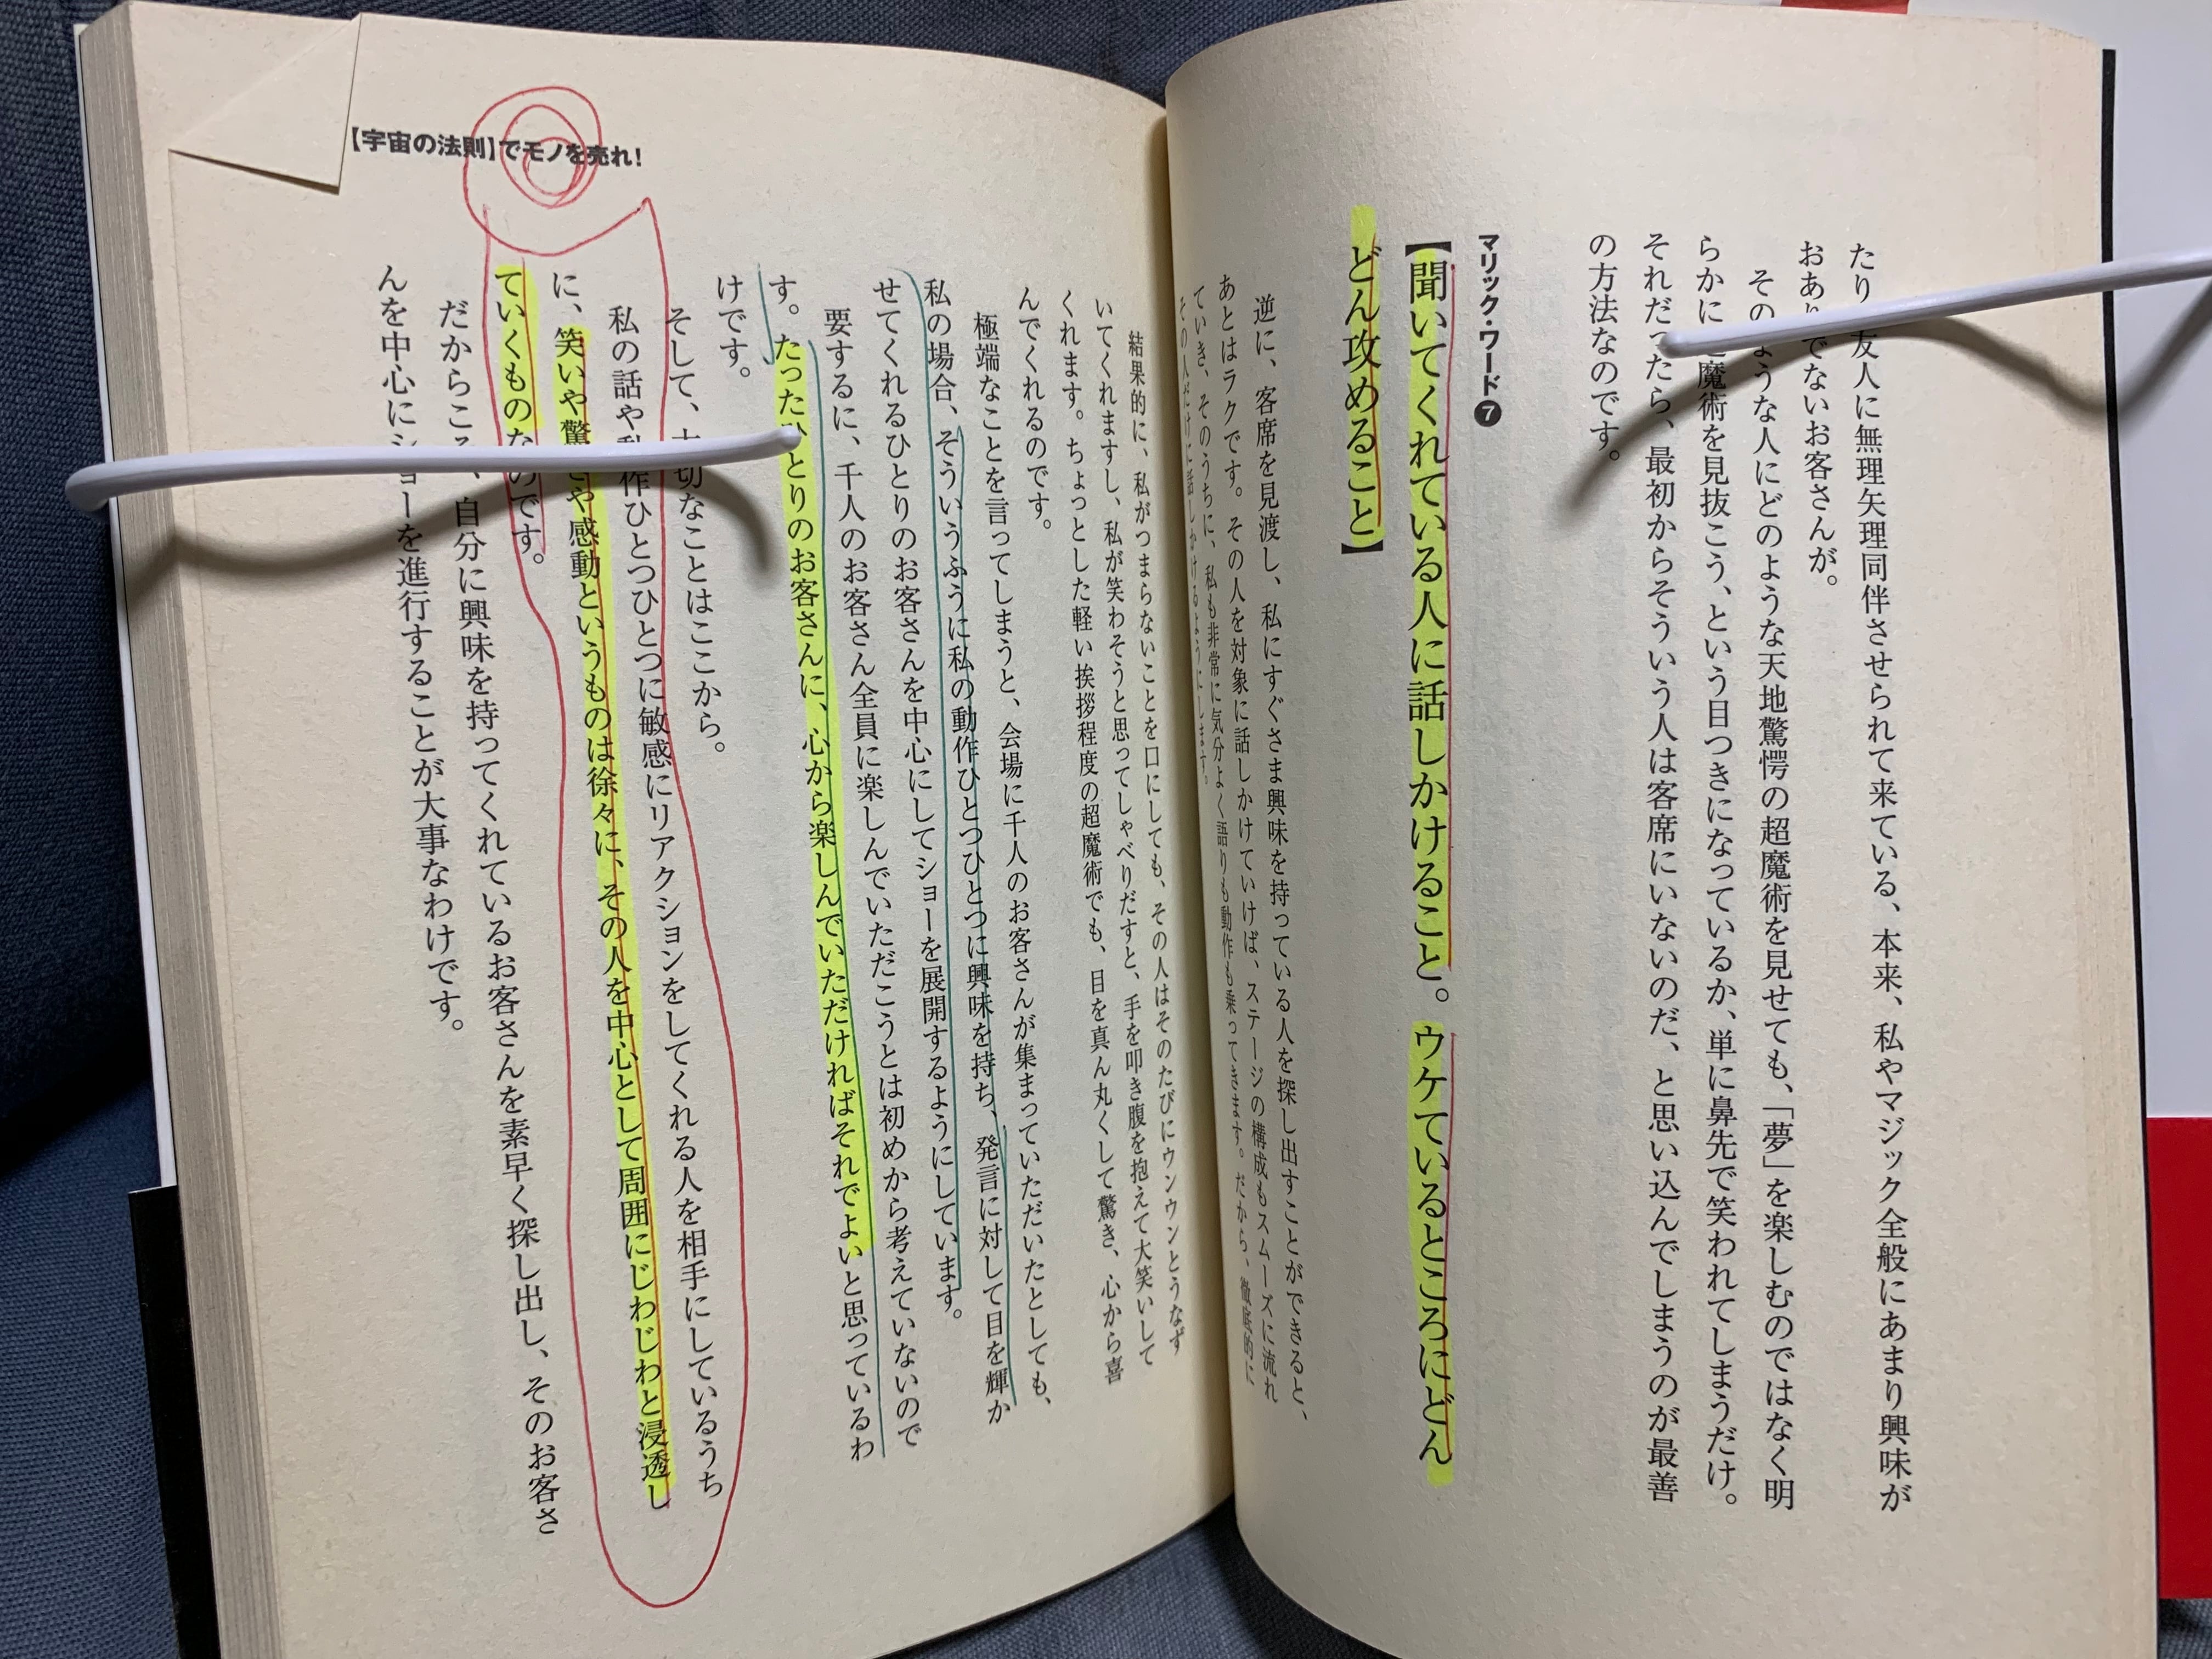 たり友人に無理矢理同伴させられて来ている、本来、私やマジック全般にあまり興味が
おありでないお客さんが。
そのような人にどのような天地驚愕の超魔術を見せても、「夢」を楽しむのではなく明
らかに超魔術を見抜こう、という目つきになっているか、単に鼻先で笑われてしまうだけ。
それだったら、最初からそういう人は客席にいないのだ、と思い込んでしまうのが最善
の方法なのです。
マリック・ワード❼
【聞いてくれている人に話しかけること。ウケているところにどん
どん攻めること】
逆に、客席を見渡し、私にすぐさま興味を持っている人を探し出すことができると、
あとはラクです。その人を対象に話しかけていけば、ステージの構成もスムーズに流れ
ていき、そのうちに、私も非常に気分よく語りも動作も乗ってきます。だから、徹底的に
その人だけに話しかけるようにします。
結果的に、私がつまらないことを口にしても、その人はそのたびにウンウンとうなず
いてくれますし、私が笑わそうと思ってしゃべりだすと、手を叩き腹を抱えて大笑いして
くれます。ちょっとした軽い挨拶程度の超魔術でも、目を真ん丸くして驚き、心から喜
んでくれるのです。
極端なことを言ってしまうと、会場に千人のお客さんが集まっていただいたとしても、
私の場合、そういうふうに私の動作ひとつひとつに興味を持ち、発言に対して目を輝か
せてくれるひとりのお客さんを中心にしてショーを展開するようにしています。
要するに、千人のお客さん全員に楽しんでいただこうとは初めから考えていないので
す。たったひとりのお客さんに、心から楽しんでいただければそれでよいと思っているわ
けです。
そして、大切なことはここから。
私の話や私作ひとつひとつに敏感にリアクションをしてくれる人を相手にしているうち
に、笑いや驚きや感動というものは徐々に、その人を中心として周囲にじわじわと浸透し
ていくものなのです。
だからこそ、自分に興味を持ってくれているお客さんを素早く探し出し、そのお客さ
んを中心にショーを進行することが大事なわけです。
【宇宙の法則】でモノを売れ！